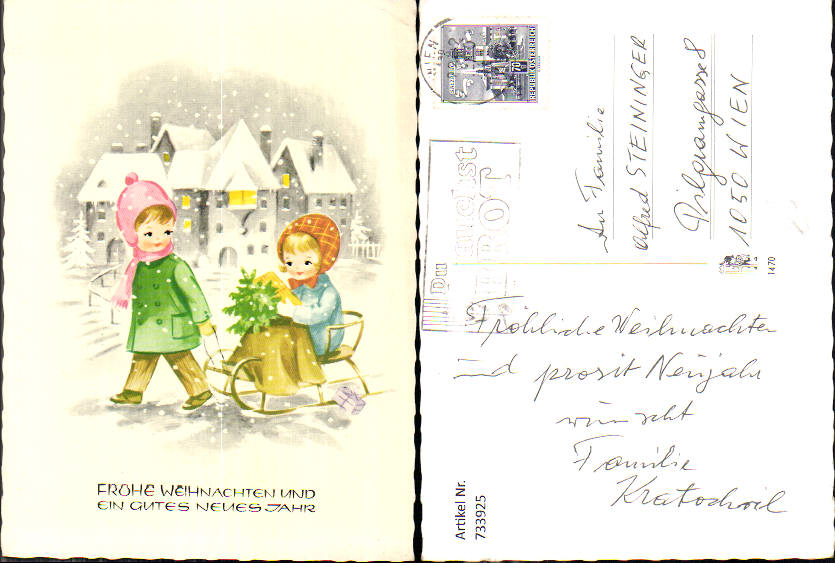 FROHE WEIHNACHTEN UND
EIN GUTES NEUES JAHR
WIEN
70
REPUBLIK ÖSTERREICH
Du
BROT
An Familie
Alfred STEININGER
Pilgramgasse 8
1050 WIEN
1470
Fröhliche Weihnachten
und prosit Neujahr
wünscht
Familie
Kratochwil
Artikel Nr.
733925